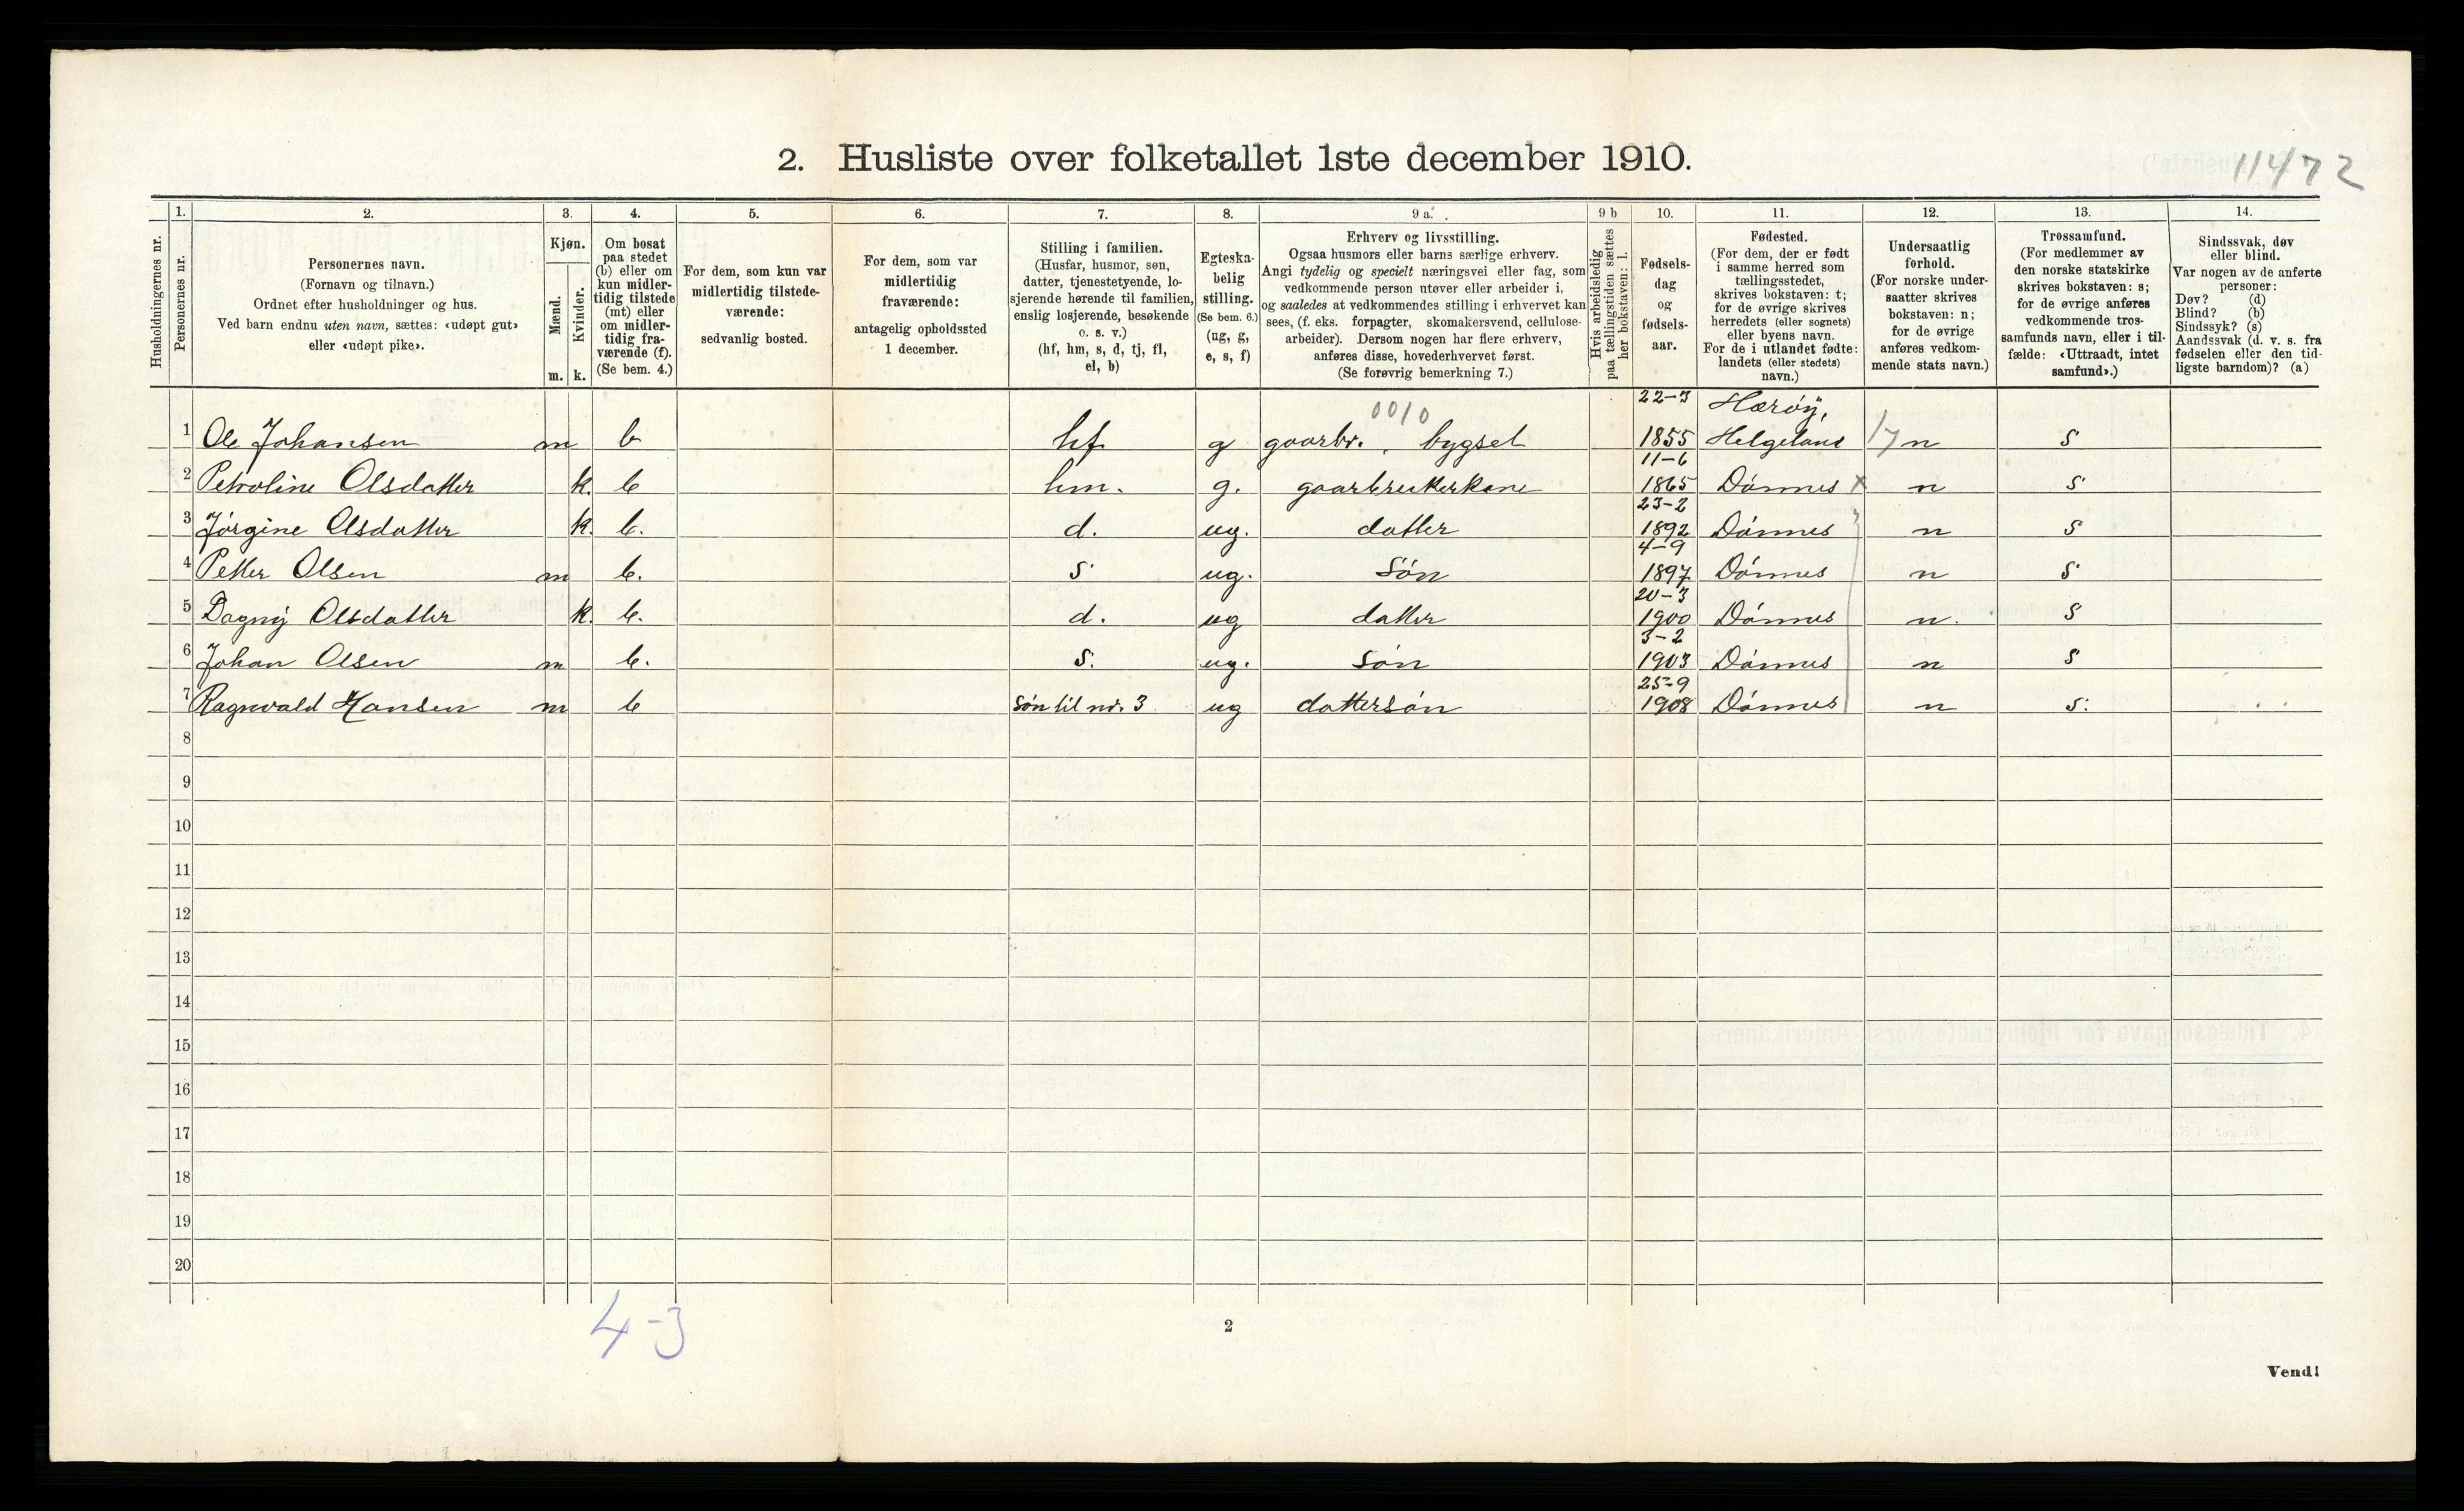 2. Husliste over folketallet 1ste december 1910.
11472
Husholdningernes nr.
1.
Personernes nr.
2.
Personernes navn.
(Fornavn og tilnavn.)
Ordnet efter husholdninger og hus.
Ved barn endnu uten navn, sættes: «udøpt gut»
eller «udøpt pike».
3.
Kjøn.
Mænd.
Kvinder.
m. k.
4.
Om bosat
paa stedet
(b) eller om
kun midler-
tidig tilstede
(mt) eller
om midler-
tidig fra-
værende (f).
(Se bem. 4.)
5.
For dem, som kun var
midlertidig tilstede-
værende:
sedvanlig bosted.
6.
For dem, som var
midlertidig
fraværende:
antagelig opholdssted
1 december.
7.
Stilling i familien.
(Husfar, husmor, søn,
datter, tjenestetyende, lo-
sjerende hørende til familien,
enslig losjerende, besøkende
o. s. v.)
(hf, hm, s, d, tj, fl,
el, b)
8.
Egteska-
belig
stilling.
(Se bem. 6.)
(ug, g,
e, s, f)
9 a.
Erhverv og livsstilling.
Ogsaa husmors eller barns særlige erhverv.
Angi tydelig og specielt næringsvei eller fag, som
vedkommende person utøver eller arbeider i,
og saaledes at vedkommendes stilling i erhvervet kan
sees, (f. eks. forpagter, skomakersvend, cellulose-
arbeider). Dersom nogen har flere erhverv,
anføres disse, hovederhvervet først.
(Se forøvrig bemerkning 7.)
9 b
Hvis arbeidsledig
paa tællingstiden sættes
her bokstaven: l.
10.
Fødsels-
dag
og
fødsels-
aar.
11.
Fødested.
(For dem, der er født
i samme herred som
tællingsstedet,
skrives bokstaven: t;
for de øvrige skrives
herredets (eller sognets)
eller byens navn.
For de i utlandet fødte:
landets (eller stedets)
navn.)
12.
Undersaatlig
forhold.
(For norske under-
saatter skrives
bokstaven: n;
for de øvrige
anføres vedkom-
mende stats navn.)
13.
Trossamfund.
(For medlemmer av
den norske statskirke
skrives bokstaven: s;
for de øvrige anføres
vedkommende tros-
samfunds navn, eller i til-
fælde: «Uttraadt, intet
samfund».)
14.
Sindssvak, døv
eller blind.
Var nogen av de anførte
personer:
Døv? (d)
Blind? (b)
Sindssyk? (s)
Aandssvak (d. v. s. fra
fødselen eller den tid-
ligste barndom)? (a)
0010 22-3 Hærøy,
1 Ole Johansen m b hf g gaarbr., bygsel 1855 Helgeland 17 n S
11-6
2 Petroline Olsdatter k. b hm. g. gaarbrukerkone 1865 Dønnes x n S
23-2
3 Jørgine Olsdatter k. b. d. ug. datter 1892 Dønnes n S
4-9
4 Petter Olsen m b. S ug. Søn 1897 Dønnes n S
20-3
5 Dagny Olsdatter k. b. d. ug datter 1900 Dønnes n. S
3-2
6 Johan Olsen m b. S. ug. Søn 1903 Dønnes n S
25-9
7 Ragnvald Hansen m b Søn til nr. 3 ug dattersøn 1908 Dønnes n S.
8
9
10
11
12
13
14
15
16
17
18
19
20
4-3
2
Vend!